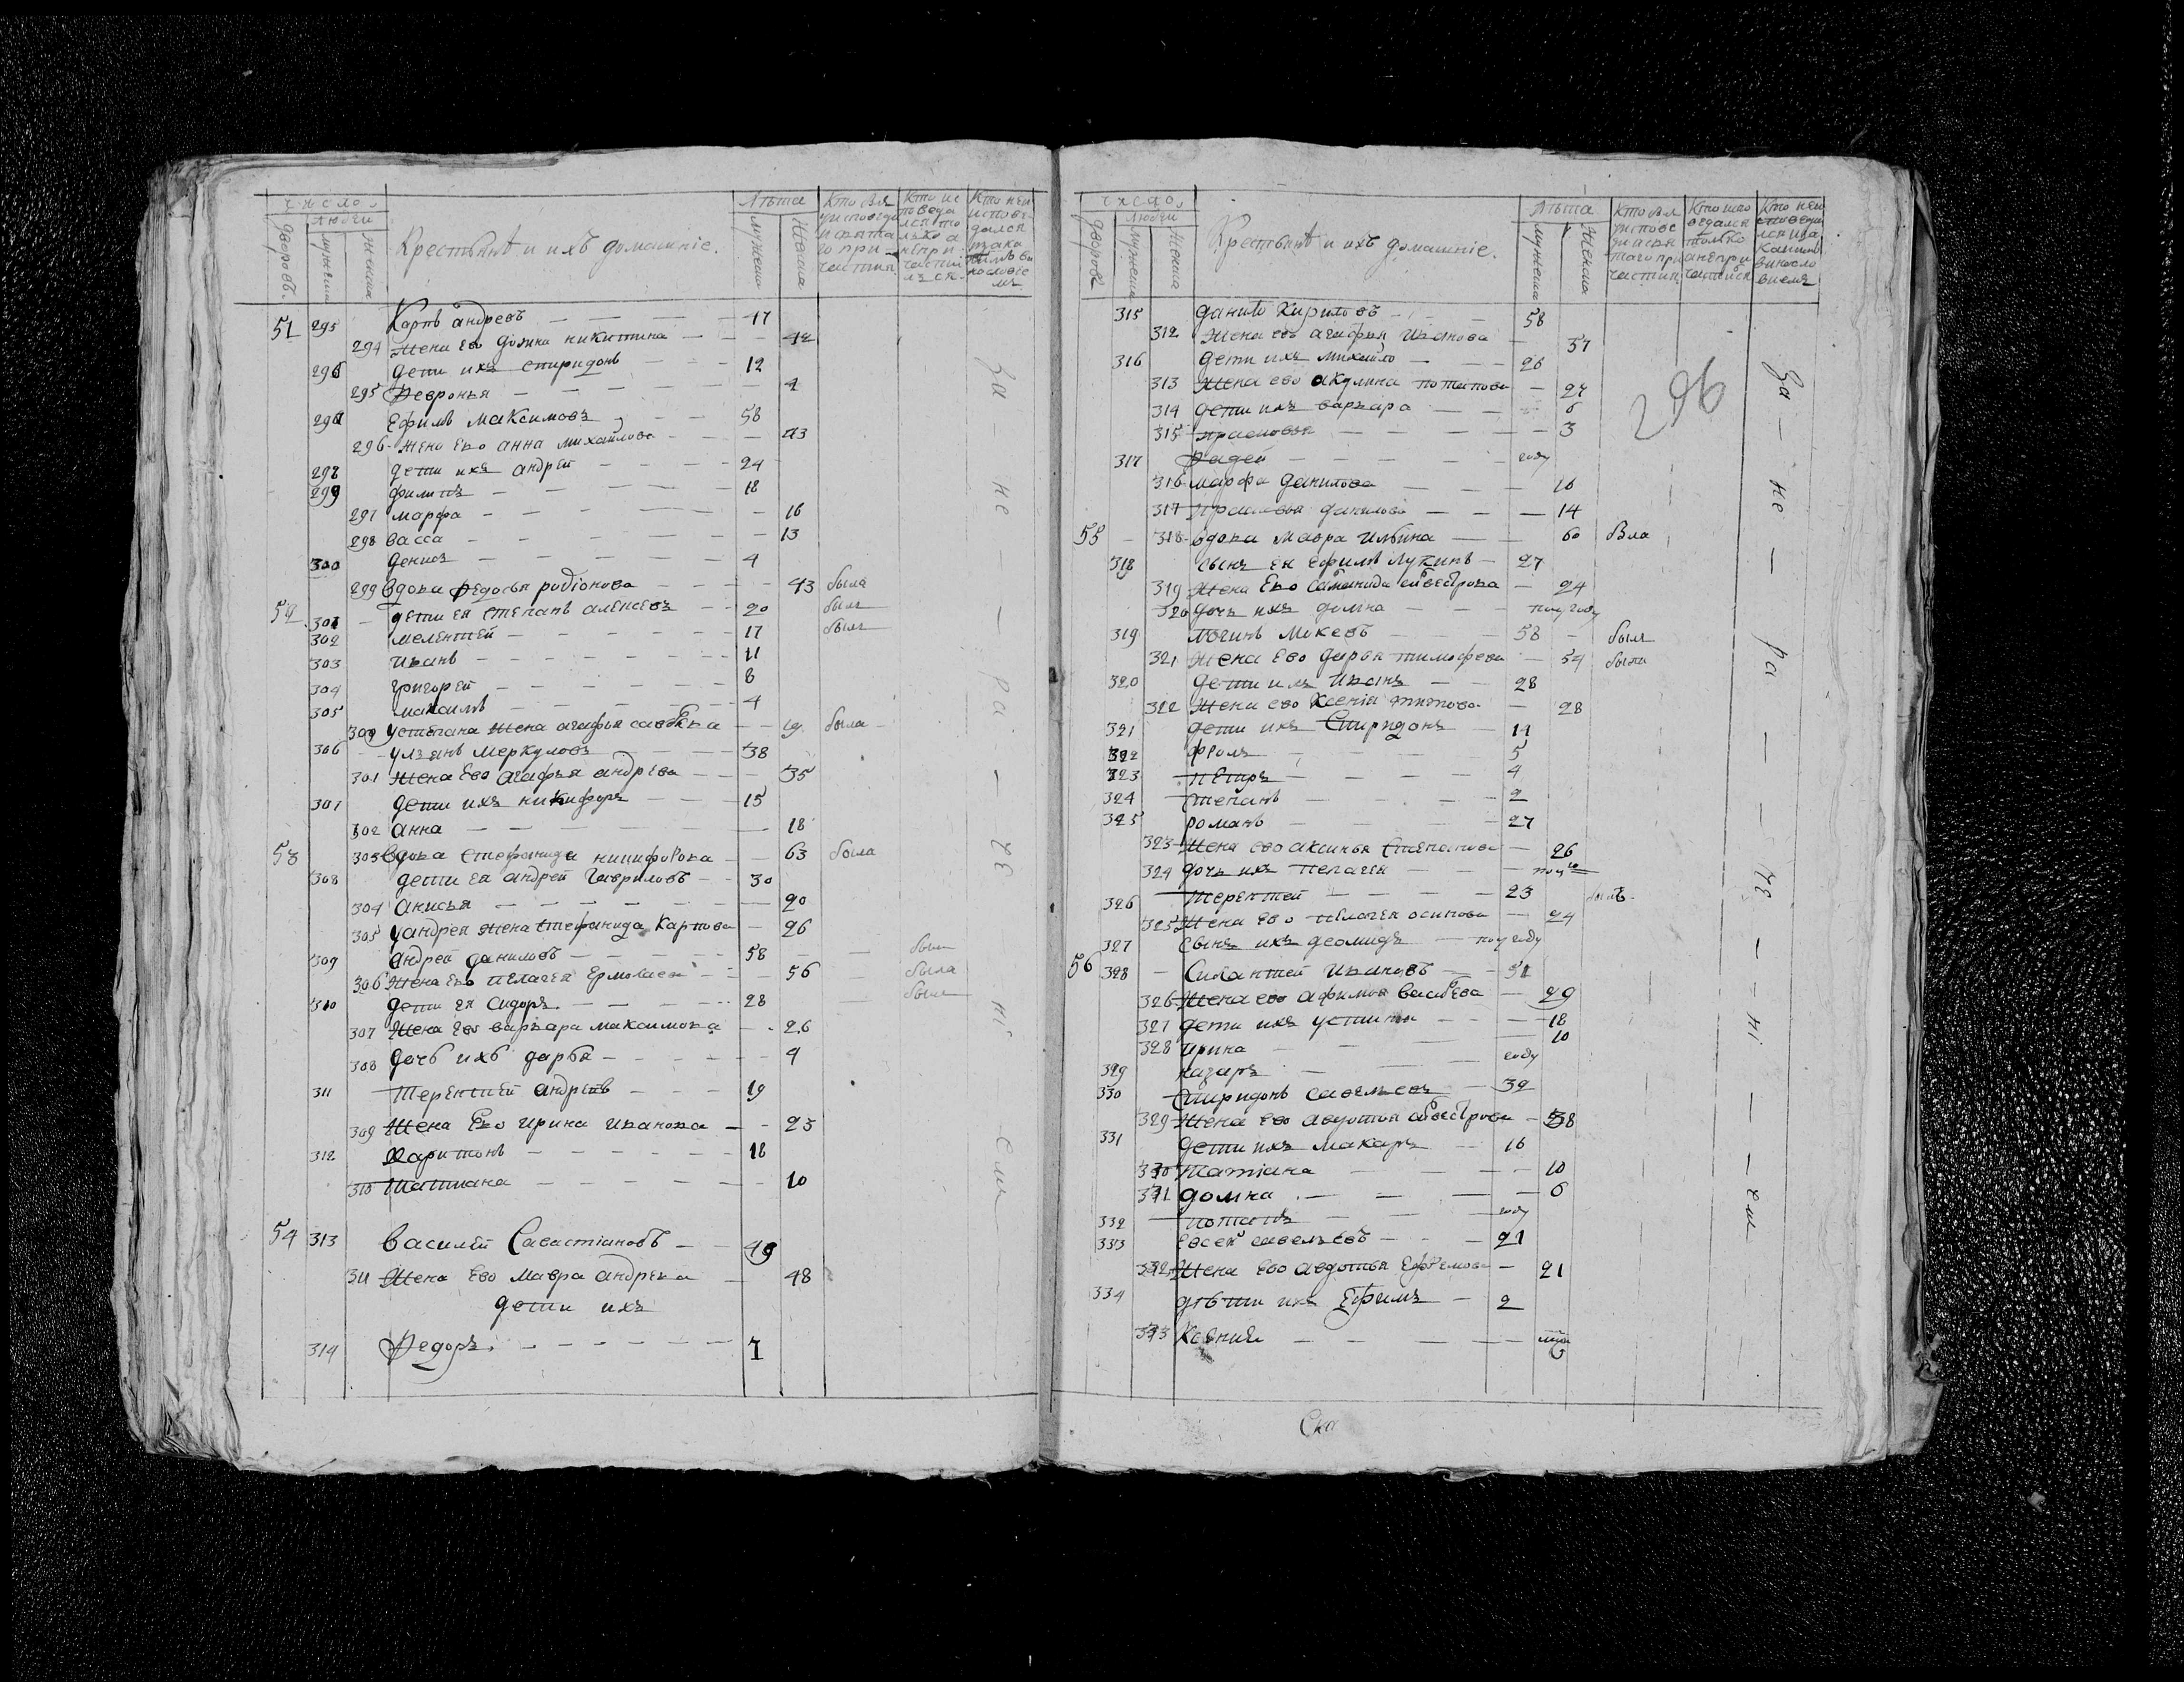 число
Лѣта
Кто был
у исповеди
и святаго при
частия
Кто ис
поведался то
лько а
не при
частился
Кто не
испове
дался
и за ка
кимъ ви
нословие
мъ
дворовъ.
людей
мужеска
женска
Крестьянѣ и ихъ домашніе.
мужеска
женска
51 295 Карпъ андреевъ 47
294 жена ево домна никитина 42
296 дети ихъ спиридонъ 12
295 Февронья 4
297 Ефимъ максимовъ 58
296 жена ево анна михайлова 43
298 дети ихъ андрей 24
299 филипъ 18
297 марфа 16
298 васса 13
300 денисъ 4
299 вдова Федосья родіонова 43 была
52 301 дети ея степанъ алексеевъ 20 былъ
302 мелентей 17 былъ
303 иванъ 11
304 григорей 8
305 максимъ 4
300 у степана жена агафья савельева 19 была
306 ульянъ меркуловъ 38
301 жена ево агафья андреева 35
307 дети ихъ никифоръ 15
302 анна 18
53 303 вдова стефанида никифорова 63 была
308 дети ея андрей Гавриловъ 30
304 анисья 20
305 у андрея жена стефанида Карпова 26
309 андрей даниловъ 58 былъ
306 жена ево пелагея Ермолаева 56 была
310 дети ея сидоръ 28 былъ
307 жена ево варвара максимова 26
308 дочь ихъ дарья 4
311 Терентей андреевъ 19
309 жена Ево ирина иванова 23
312 Харитонъ 18
310 Татиана 10
54 313 василей Савастіановъ 49
311 жена ево мавра андреева 48
дети ихъ
314 Федоръ. 7
за — не — ра — че — ні — емъ
число
Лѣта
Кто был
у исповеди
и святаго при
частия
Кто испо
ведался
только
а не при
частился
Кто не и
споведал
ся и за
какимъ
виносло
виемъ
дворовъ
людей
мужеска
женска
Крестьянѣ и ихъ домашніе.
мужеска
женска
296
315 данило Кириловъ 58
312 жена ево агафья иванова 57
316 дети ихъ михайло 26
313 жена ево акулина потапова 27
314 дети ихъ варвара 6
315 прасковья 3
317 Фадей году
316 марфа данилова 16
317 прасковья данилова 14
55 318 вдова мавра ильина 60 была
318 сынъ ея ефимъ лукинъ 27
319 жена Ево саламанида силвестрова 24
320 дочь ихъ домна полугоду
319 логинъ макеевъ 58 былъ
321 жена ево дарья тимофеева 54 была
320 дети ихъ иванъ 28
322 жена ево Ксенія титова 28
321 дети ихъ Спиридонъ 11
322 фролъ 5
323 пѣтръ 4
324 степанъ 2
325 романъ 27
323 жена ево аксинья степанова 26
324 дочь ихъ пелагея
326 терентей 23 былъ
325 жена ево пелагея осипова 24
327 сынъ ихъ деомидъ полугоду
56 328 Силантей ивановъ 51
326 жена ево афимья васильева 49
327 дети ихъ устинья 18
328 ирина 10
329 назаръ году
330 Спиридонъ савельевъ 39
329 жена ево авдотья силвестрова 38
331 дети ихъ макаръ 16
330 Татіана 10
331 домна 6
332 потапъ году
333 евсей савельевъ 21
332 жена ево авдотья Ефремова 21
334 дѣти ихъ Ефимъ 2
333 Ксения
за — не — ра — че — ні — емъ
Ска